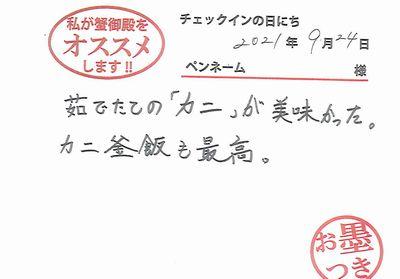 私が蟹御殿を
オススメ
します!!
チェックインの日にち
2021年 9月24日
ペンネーム 様
茹でたての「カニ」が美味かった。
カニ釜飯も最高。
お墨
つき